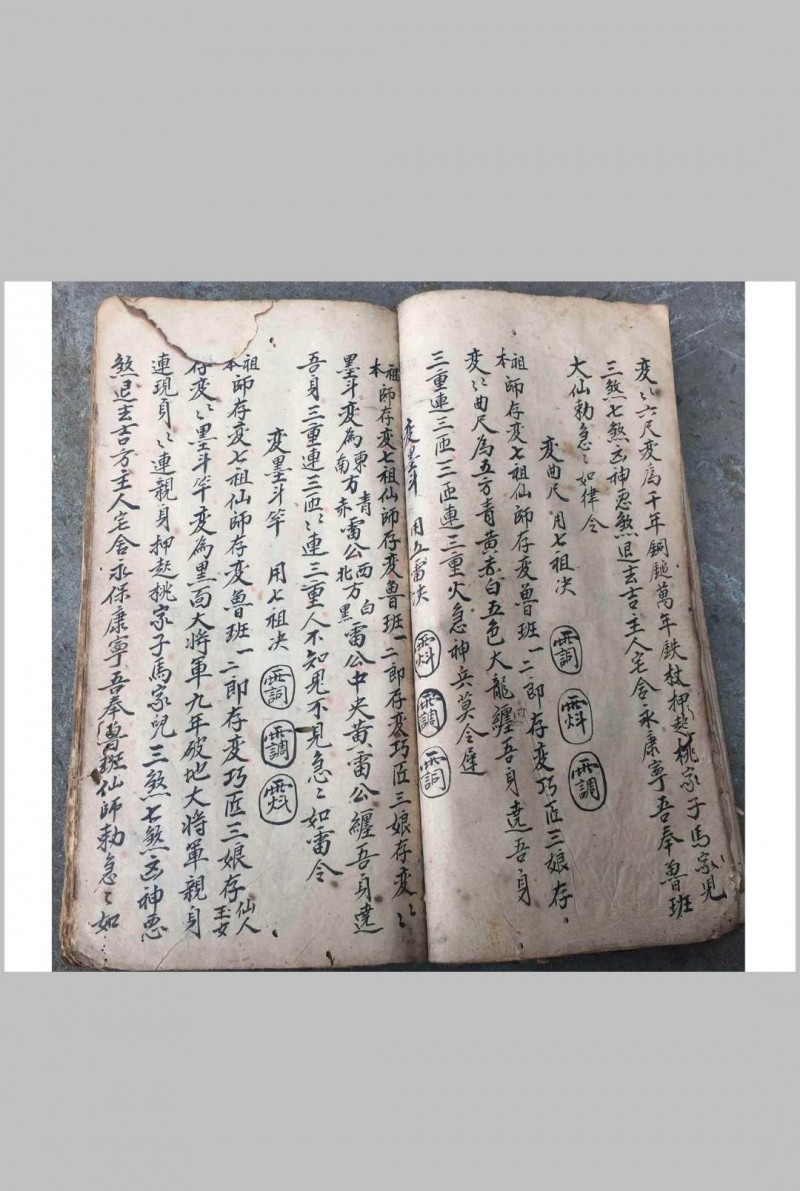 変〻六尺変為千年銅鎚萬年鉄杖押起桃家子馬家児
三煞七煞凶神惡煞退去吉主人宅舍永康寧吾奉魯班
大仙勅急〻如律令
変曲尺 用七祖决
祖本師存変七祖仙師存変魯班一二郎存変巧匠三娘存
変〻曲尺為五方青黄赤白五色大龍纏吾身遶吾身
三重連三匝三匝連三重火急神兵莫令遲
変墨斗 用五雷决
祖本師存変七祖仙師存変魯班一二郎存変巧匠三娘存変〻
墨斗変為東方青南方赤雷公西白北方黑雷公中央黄雷公纏吾身遶
吾身三重連三匝〻連三重人不知鬼不見急〻如雷令
変墨斗竿 用七祖决
祖本師存変七祖仙師存変魯班一二郎存変巧匠三娘存仙人玉女
存変〻墨斗竿変為黑面大將軍九年破地大將軍親身
連現身〻連親身押起桃家子馬家児三煞七煞凶神惡
煞退去吉方主人宅舍永保康寧吾奉魯班仙師勅急〻如